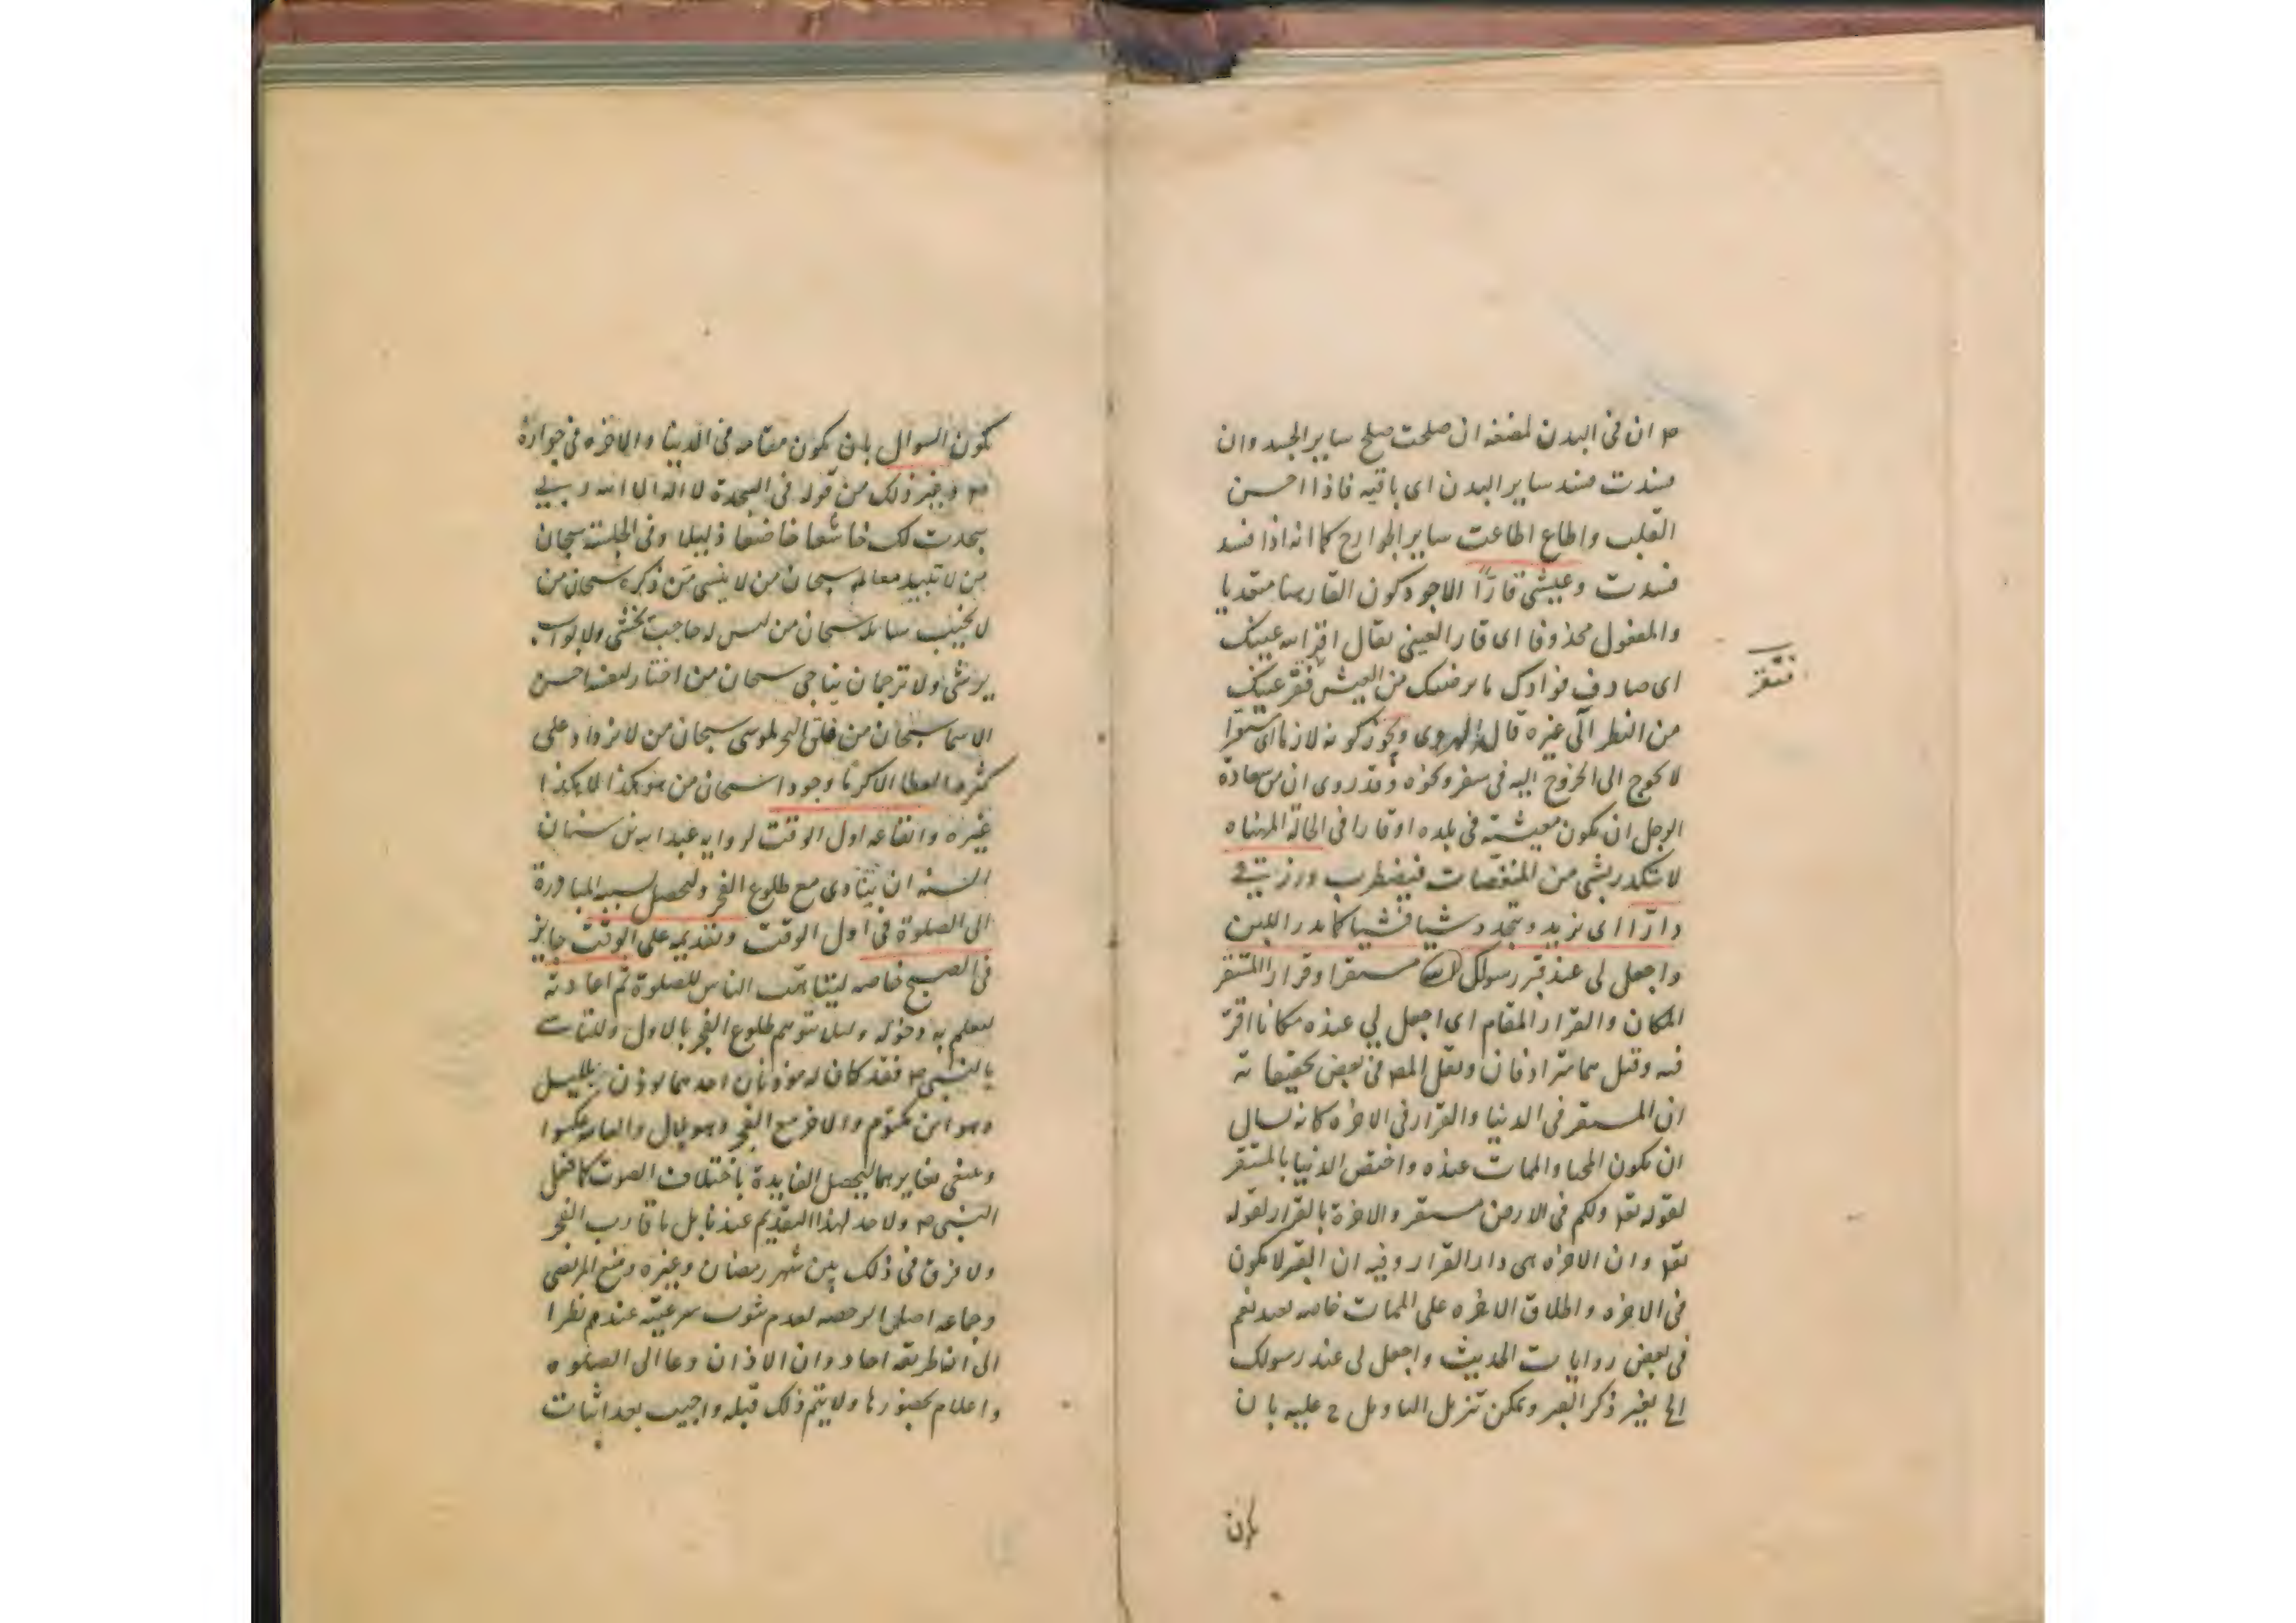 ص ان فى البدن لمضغه ان صلحت صلح ساير الجسد وان
فسدت فسد ساير البدن اى باقيه فاذا احسن
القلب واطاع اطاعت ساير الجوارح كما انه اذا فسد
فسدت وعيشى قارّا الاجود كون القار هنا متعديا
والمفعول محذوفا اى قار العينى يقال اقر الله عينك
اى صادف فوادك ما يرضيك من العيش فتقر عينك
من النظر الى غيره قال الهروى ويجوز كونه لازما اى مستقرا
لا يحوج الى الخروج اليه فى سفر ونحوه وقد روى ان من سعادة
الرجل ان يكون معيشته فى بلده او قارا فى الحالة المهناه
لا يتكدر بشى من المنغصات فيضطرب ورزقى
دارّا اى يزيد ويتجدد شيا فشيا كما يدر اللبن
واجعل لى عند قبر رسولك مستقرا وقرارا المستقر
المكان والقرار المقام اى اجعل لي عنده مكانا اقر
فيه وقيل هما مترادفان ونقل المص فى بعض تحقيقاته
ان المستقر فى الدنيا والقرار فى الاخره كانه يسال
ان يكون المحيا والممات عنده واختص الدنيا بالمستقر
لقوله تعلى ولكم فى الارض مستقر والاخرة بالقرار لقوله
تعلى وان الاخره هى دار القرار وفيه ان القبر لا يكون
فى الاخره واطلاق الاخره على الممات خاصه بعيد نعم
فى بعض روايات الحديث واجعل لى عند رسولك
الخ بغير ذكر القبر ويمكن تنزيل التاويل ح عليه بان
يكون
فتقر
يكون السوال بان يكون مقامه فى الدنيا والاخره فى جواره
ص وبغير ذلك من قوله فى السجدة لا اله الا انت ربي
سجدت لك خاشعا خاضعا ذليلا وفى الجلسة سبحان
من لا تبيد معالمه سبحان من لا ينسى من ذكره سبحان من
لا يخيب سايله سبحان من ليس له حاجب يغشى ولا بواب
يرشى ولا ترجمان يناجى سبحان من اختار لنفسه احسن
الاسما سبحان من فلق البحر لموسى سبحان من لا يزداد على
كثرة العطا الا كرما وجودا سبحان من هو هكذا لا هكذا
غيره وايقاعه اول الوقت لروايه عبد الله بن سنان
السنه ان ينادى مع طلوع الفجر وليحصل سببه المبادرة
الى الصلوة فى اول الوقت وتقديمه على الوقت جايز
فى الصبح خاصه ليتاهب الناس للصلوة ثم اعادته
ليعلم به دخوله وليلا يتوهم طلوع الفجر بالاول وللتاسي
بالنبى ص فقد كان له موذنان احدهما يوذن بليل
وهو ابن مكتوم والاخر مع الفجر وهو بلال والعامه عكسوا
وينبغى تغايرهما ليحصل الفايدة باختلاف الصوت كما فعل
النبى ص ولا حد لهذا التقديم عندنا بل ما قارب الفجر
ولا فرق فى ذلك بين شهر رمضان وغيره ومنع المرتضى
وجماعه اصل الرخصه لعدم ثبوت شرعيته عندهم نظرا
الى ان طريقه احاد وان الاذان دعا الى الصلوه
واعلام بحضورها ولا يتم ذلك قبله واجيب بعد اثبات